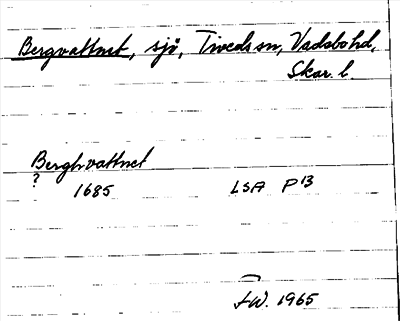 Bergvattnet, sjö, Tiveds sn, Vadsbo hd,
Skar. l.
Berghvattnet
?
1685 LSA P 13
I.W. 1965